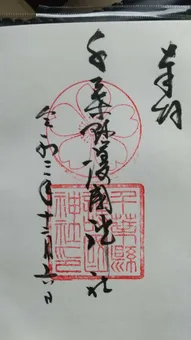 奉拝
千葉縣護國神社
令和三年十二月十六日
千葉縣護國神社之印